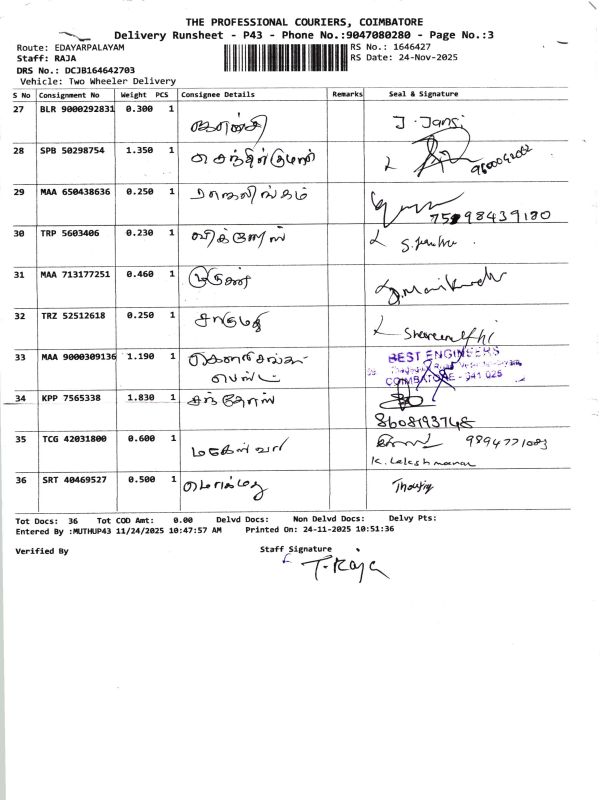 THE PROFESSIONAL COURIERS, COIMBATORE
Delivery Runsheet - P43 - Phone No.:9047080280 - Page No.:3
Route: EDAYARPALAYAM RS No.: 1646427
Staff: RAJA RS Date: 24-Nov-2025
DRS No.: DCJB164642703
Vehicle: Two Wheeler Delivery
S No Consignment No Weight PCS Consignee Details Remarks Seal & Signature
27 BLR 9000292831 0.300 1 J. Jansi
28 SPB 50298754 1.350 1 செந்தில்குமார்
29 MAA 650438636 0.250 1 ராஜலிங்கம் 7598439180
30 TRP 5603406 0.230 1
31 MAA 713177251 0.460 1 முருகன்
32 TRZ 52512618 0.250 1 சாருமதி
33 MAA 9000309136 1.190 1 BEST ENGINEERS
COIMBATORE - 641 025
34 KPP 7565338 1.830 1 சந்தோஸ்
8608193748
35 TCG 42031800 0.600 1 9894771083
K. Lakshmanan
36 SRT 40469527 0.500 1
Tot Docs: 36 Tot COD Amt: 0.00 Delvd Docs: Non Delvd Docs: Delvy Pts:
Entered By :MUTHUP43 11/24/2025 10:47:57 AM Printed On: 24-11-2025 10:51:36
Verified By Staff Signature
T. Raja